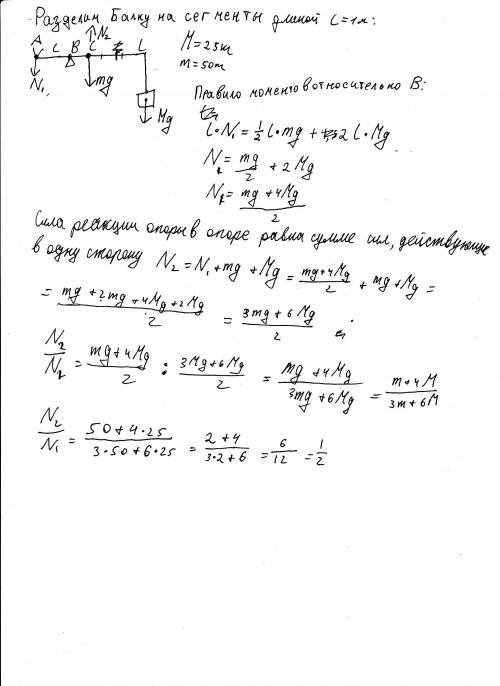 Разделим балку на сегменты длиной l=1м:
A l B l N₂ L
N₁ mg Mg
M=25т
m=50т
Правило моментов относительно B:
l·N₁ = 1/2 l·mg + 2l·Mg
N₁ = mg/2 + 2Mg
N₁ = (mg+4Mg)/2
Сила реакции опоры в опоре равна сумме сил, действующие
в одну сторону N₂ = N₁+mg+Mg = (mg+4Mg)/2 + mg+Mg =
= (mg+2mg+4Mg+2Mg)/2 = (3mg+6Mg)/2
N₂/N₁ = (mg+4Mg)/2 : (3Mg+6Mg)/2 = (mg+4Mg)/(3mg+6Mg) = (m+4M)/(3m+6M)
N₂/N₁ = (50+4·25)/(3·50+6·25) = (2+4)/(3·2+6) = 6/12 = 1/2